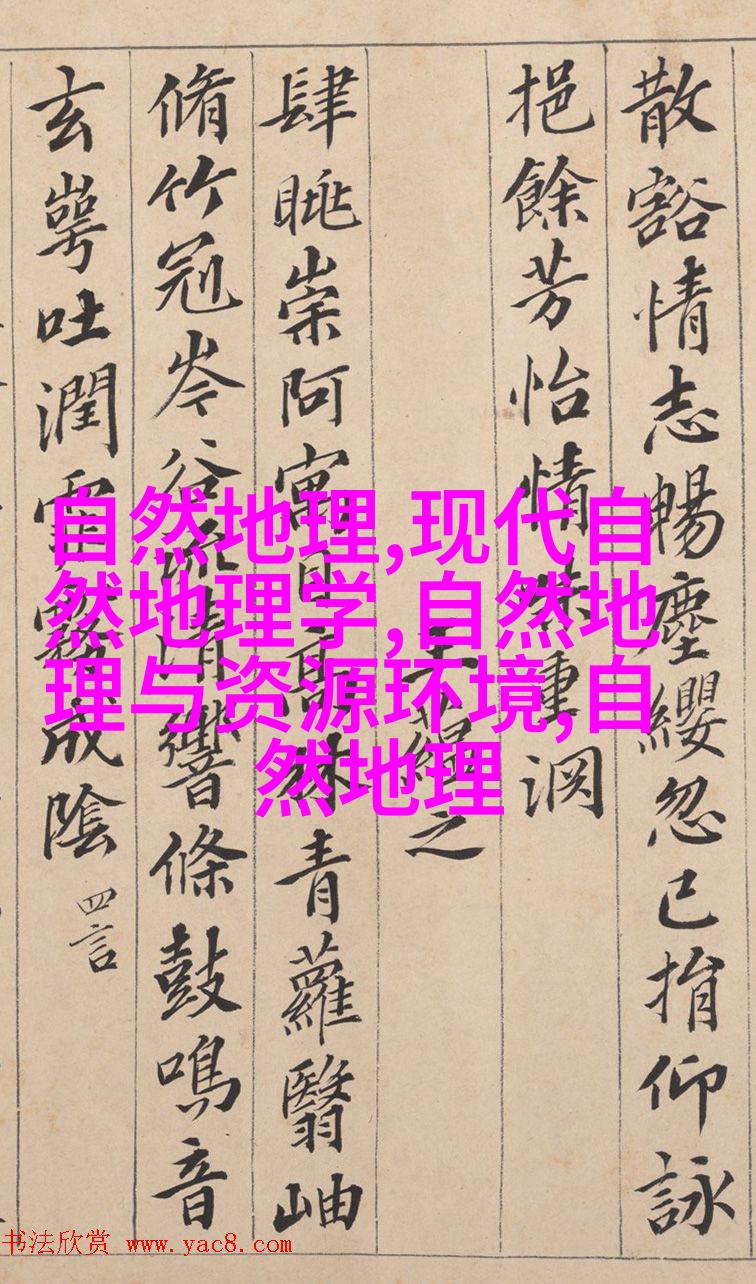 散豁情志暢塵纓忽已捐仰詠
挹餘芳怡情味重渊
王蘊之
肆眺崇阿寓目高林青蘿翳岫
脩竹冠岑谷流清響條鼓鳴音
玄崿吐潤霏霧成陰
四言
自然地理,现代自
然地理学,自然地
理与资源环境,自
然地理
书法欣赏 www.yac8.com